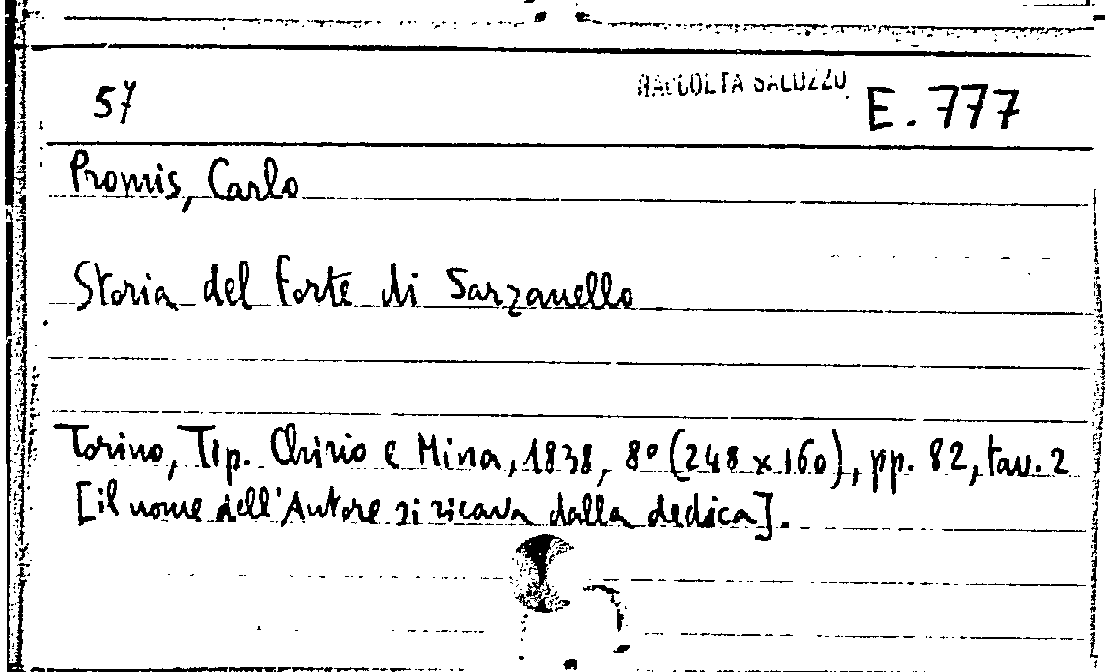 57 RACCOLTA SALUZZO E. 777
Promis, Carlo
Storia del forte di Sarzanello
Torino, Tip. Chirio e Mina, 1838, 8° (248 x 160), pp. 82, tav. 2
[il nome dell'Autore si ricava dalla dedica].